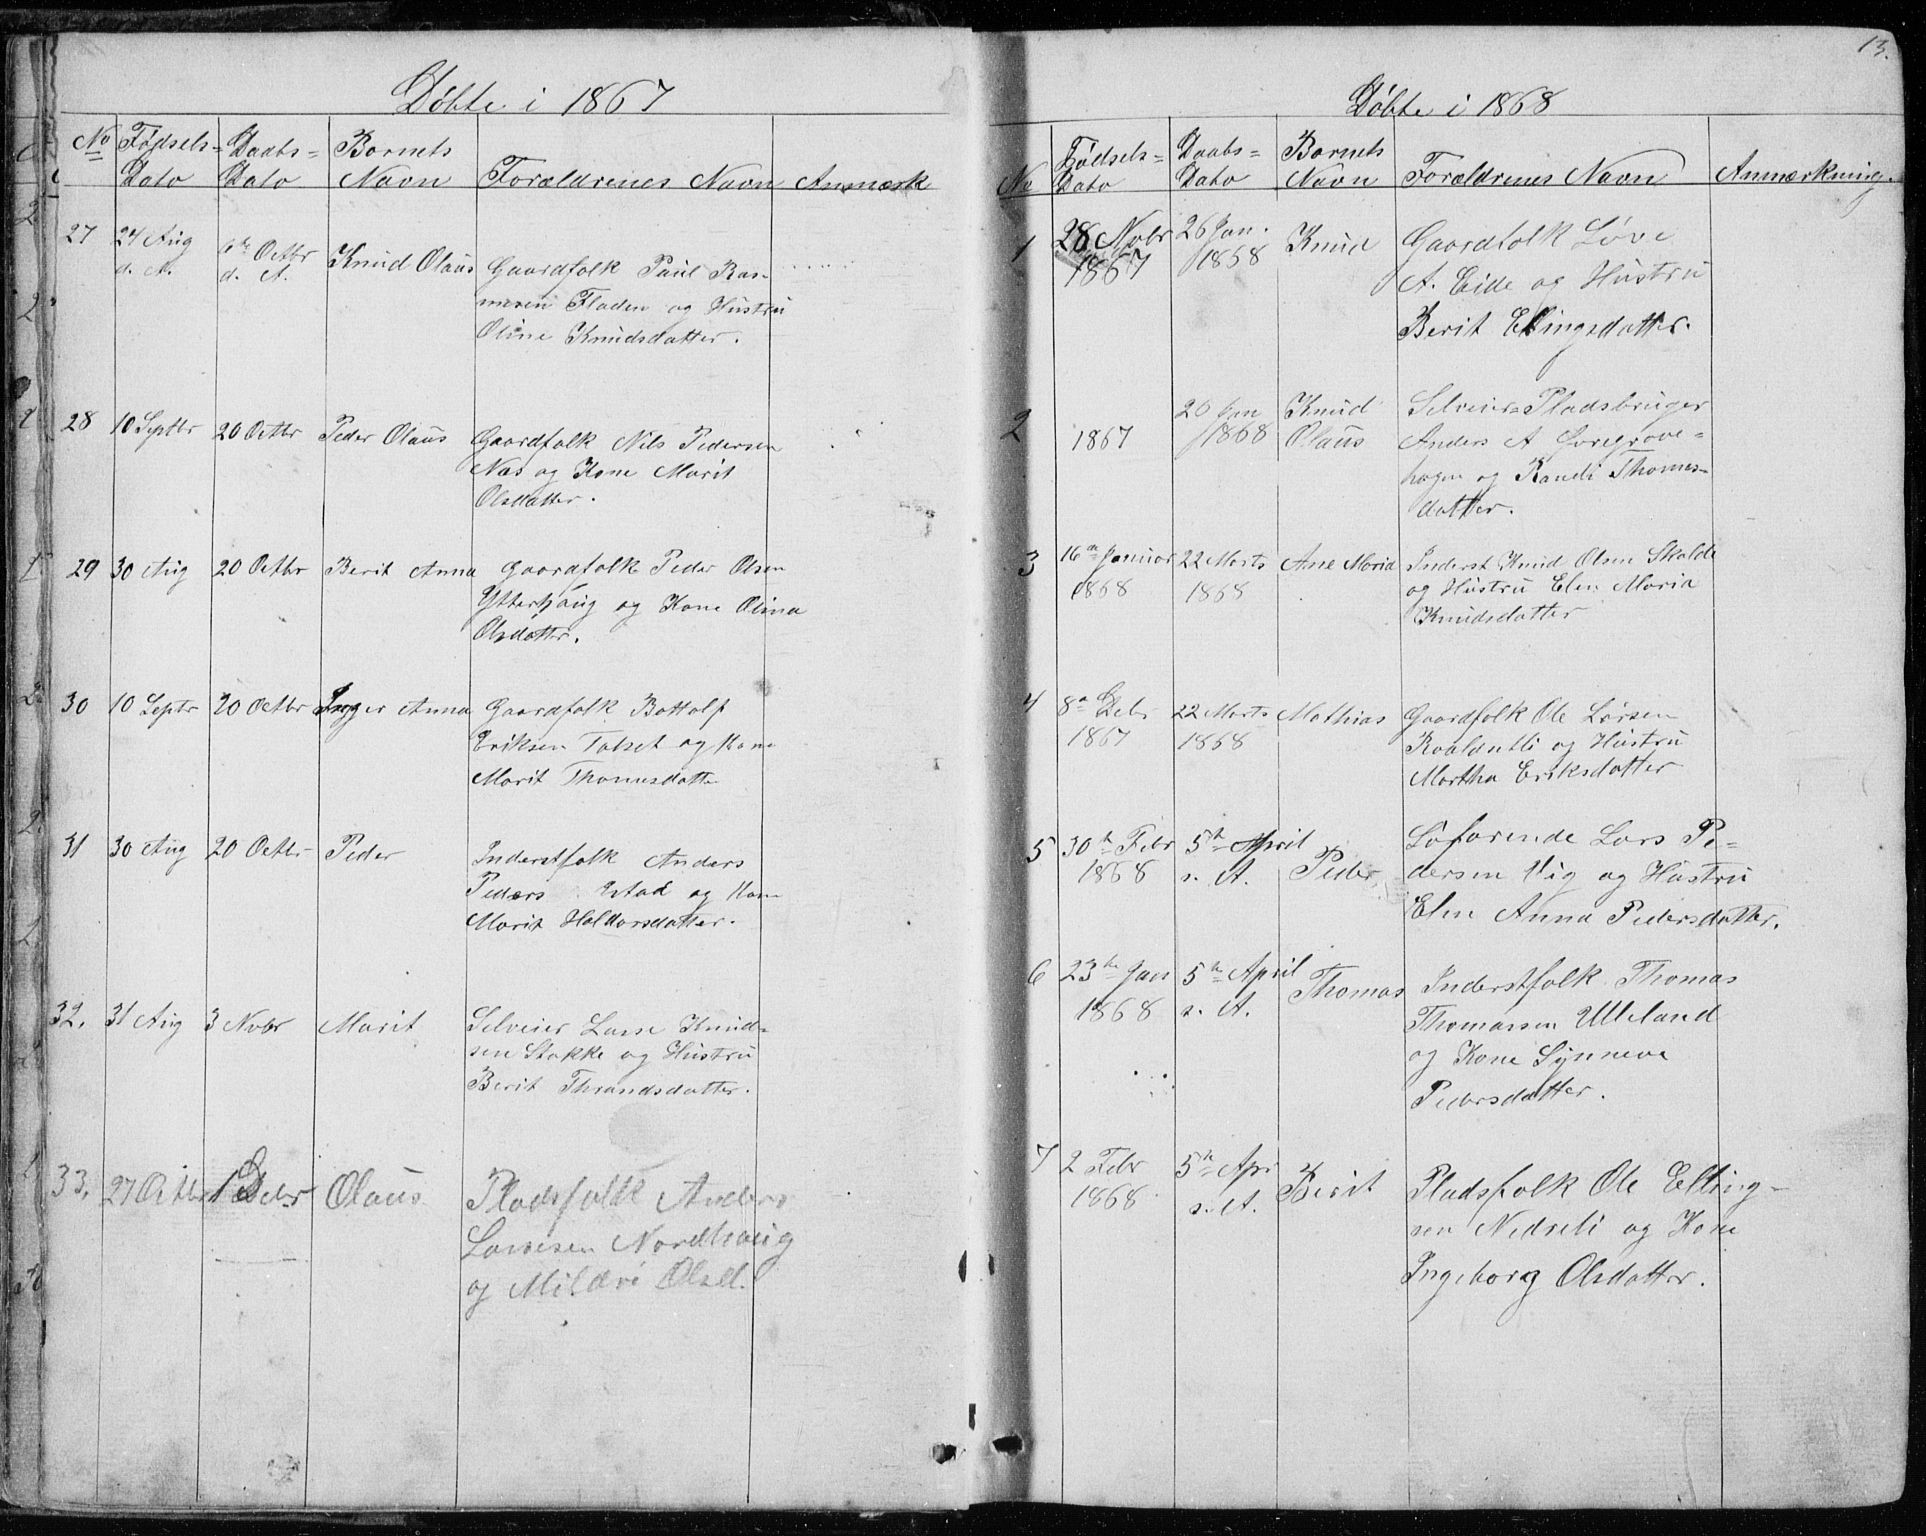 Døbte i 1867
No Fødsels= Daabs= Barnets
Dato Dato Navn Forældrenes Navn Anmærk
27 24 Aug 6te Octbr Knud Olaus Gaardfolk Paul Ras-
d. A. d. A. musen Fladen og Hustru
Oline Knudsdatter.
28 10 Septbr 20 Octbr Peder Olaus Gaardfolk Nils Pedersen
Næs og Kone Marit
Olsdatter.
29 30 Aug 20 Octbr Berit Anna Gaardfolk Peder Olsen
Ytterhaug og Kone Olina
Olsdatter.
30 10 Septr 20 Octbr Inger Anna Gaardfolk Bottolf
Eriksen Talset og Kone
Marit Thomasdatte
31 30 Aug 20 Octbr Peder Inderstfolk Anders
Peders og Kone
Marit Haldorsdatter.
32. 31 Aug 3 Novbr Marit Selveier Lasse Knud-
sen Stokke og Hustru
Berit Thrandsdatter.
33. 27 Octbr 1 Debr Olaus Pladsfolk Anders
Larsesen Nordhaug
og Mildri Olsd.
13.
Døbte i 1868
No Fødsels= Daabs= Barnets
Dato Dato Navn Forældrenes Navn Anmærkning.
1 28 Novbr 26 Jan. Knud Gaardfolk Løve
1867 1868 A. Eide og Hustru
Berit Ellingsdatter.
2 1867 20 Jan Knud Selveier=Pladsbruger
1868 Olaus Anders A
hagen og Randi Thomas-
datter.
3 16de Januar 22 Marts Ane Maria Inderst Knud Olsen Skalde
1868 1868 og Hustru Elen Maria
Knudsdatter
4 8de Debr 22 Marts Mathias Gaardfolk Ole Larsen
1867 1868 Roaldntli og Hustru
Martha Eriksdatter
5 30te Febr 5te April Peder Søfarende Lars Pe-
1868 s. A. dersen Vig og Hustru
Elen Anna Pedersdatter.
6 23de Jan 5te April Thomas Inderstfolk Thomas
1868 s. A. Thomassen Ulleland
og Kone Synneva
Pedersdatter.
7 2 Febr 5te Apr Berit Pladsfolk Ole Elling-
1868 s. A. sen Nedreli og Kone
Ingeborg Olsdatter.